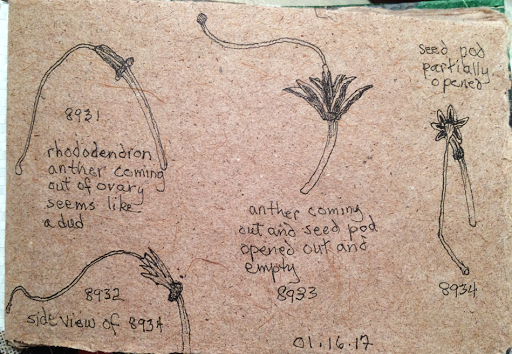 8931
rhododendron
anther coming
out of ovary
seems like
a dud
8932
side view of 8934
anther coming
out and seed pod
opened out and
empty
8933
seed pod
partially
opened
8934
01.16.17